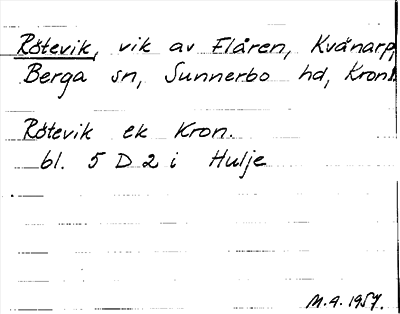 Rötevik, vik av Flåren, Kvänarp,
Berga sn, Sunnerbo hd, Kron.
Rötevik ek Kron.
bl. 5 D 2 i Hulje
M.A. 1957.